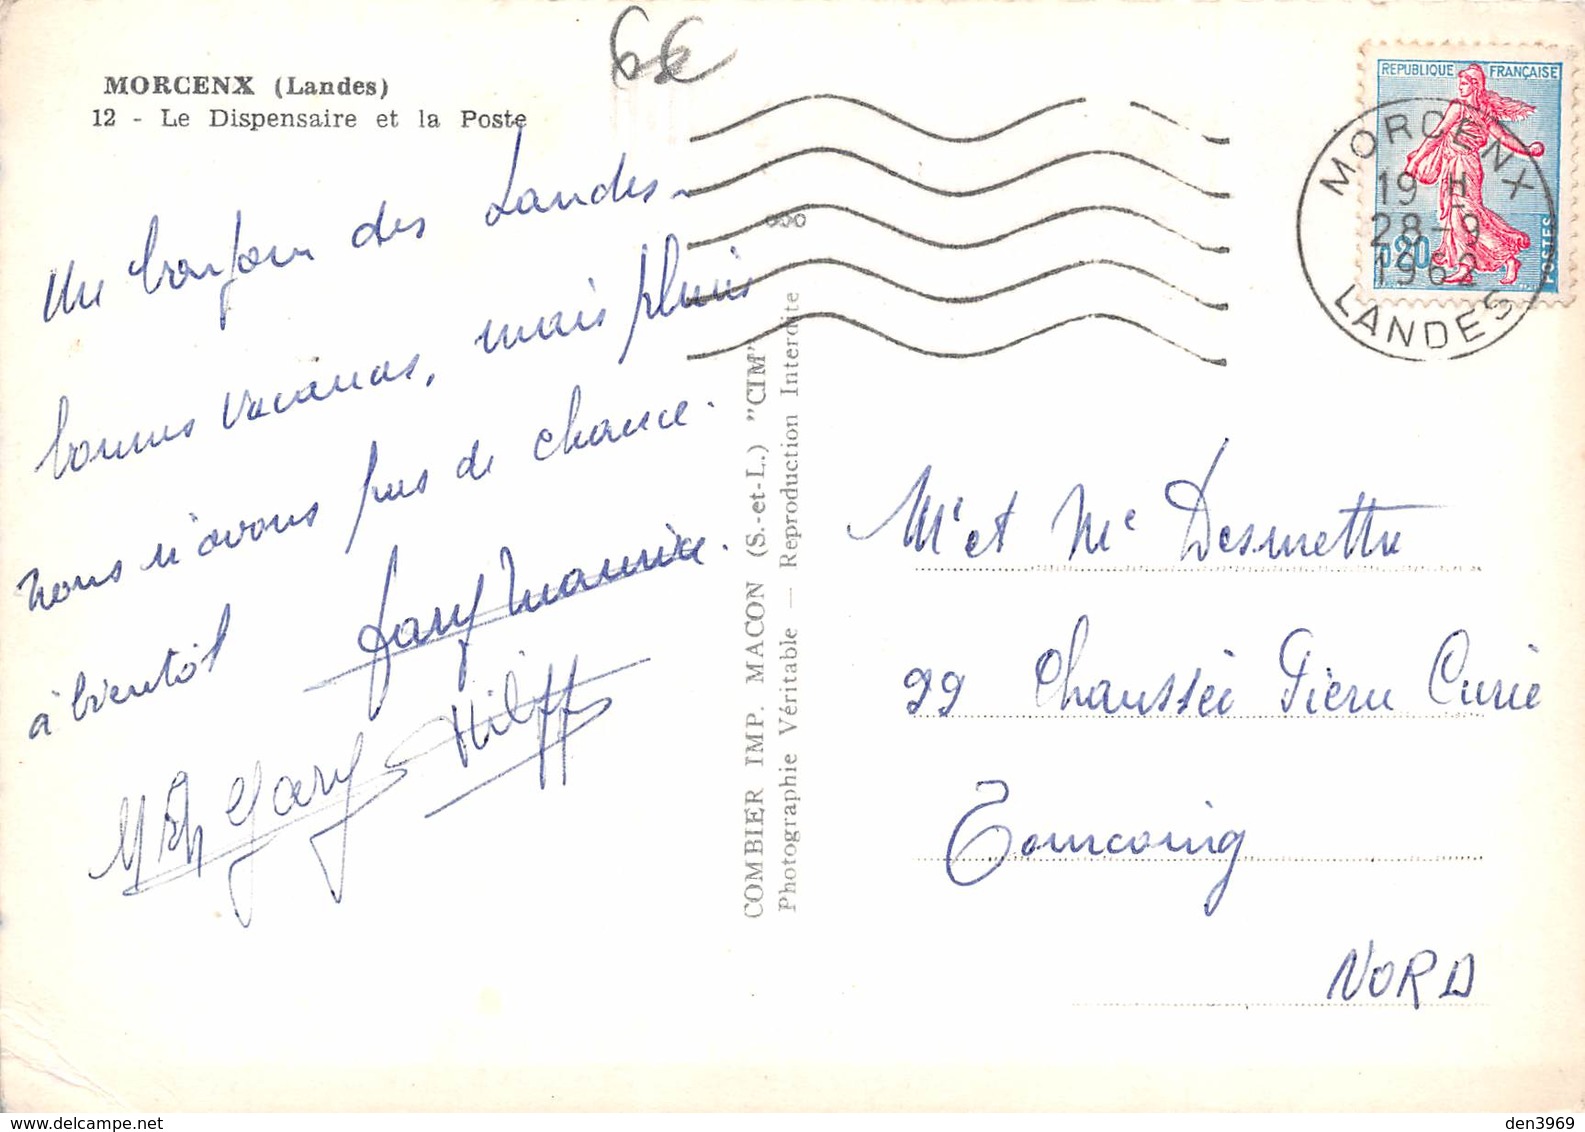 MORCENX (Landes)
12 - Le Dispensaire et la Poste
6€
Un bonjour des Landes -
bonnes vacances, mais pluie
nous n'avons pas de chance.
à bientôt
REPUBLIQUE FRANÇAISE
0,20
POSTES
MORCENX
19 H
28-9
1962
LANDES
COMBIER IMP. MACON (S.-et-L.) "CIM"
Photographie Véritable — Reproduction Interdite
Mr et Me Desmettre
99 Chaussée Pierre Curie
Tourcoing
NORD
den3969